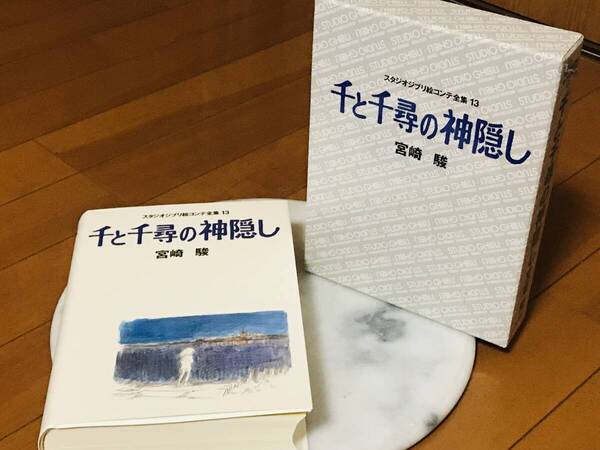 スタジオジブリ絵コンテ全集 13
千と千尋の神隠し
宮崎 駿
スタジオジブリ絵コンテ全集 13
千と千尋の神隠し
宮崎 駿
STUDIO GHIBLI